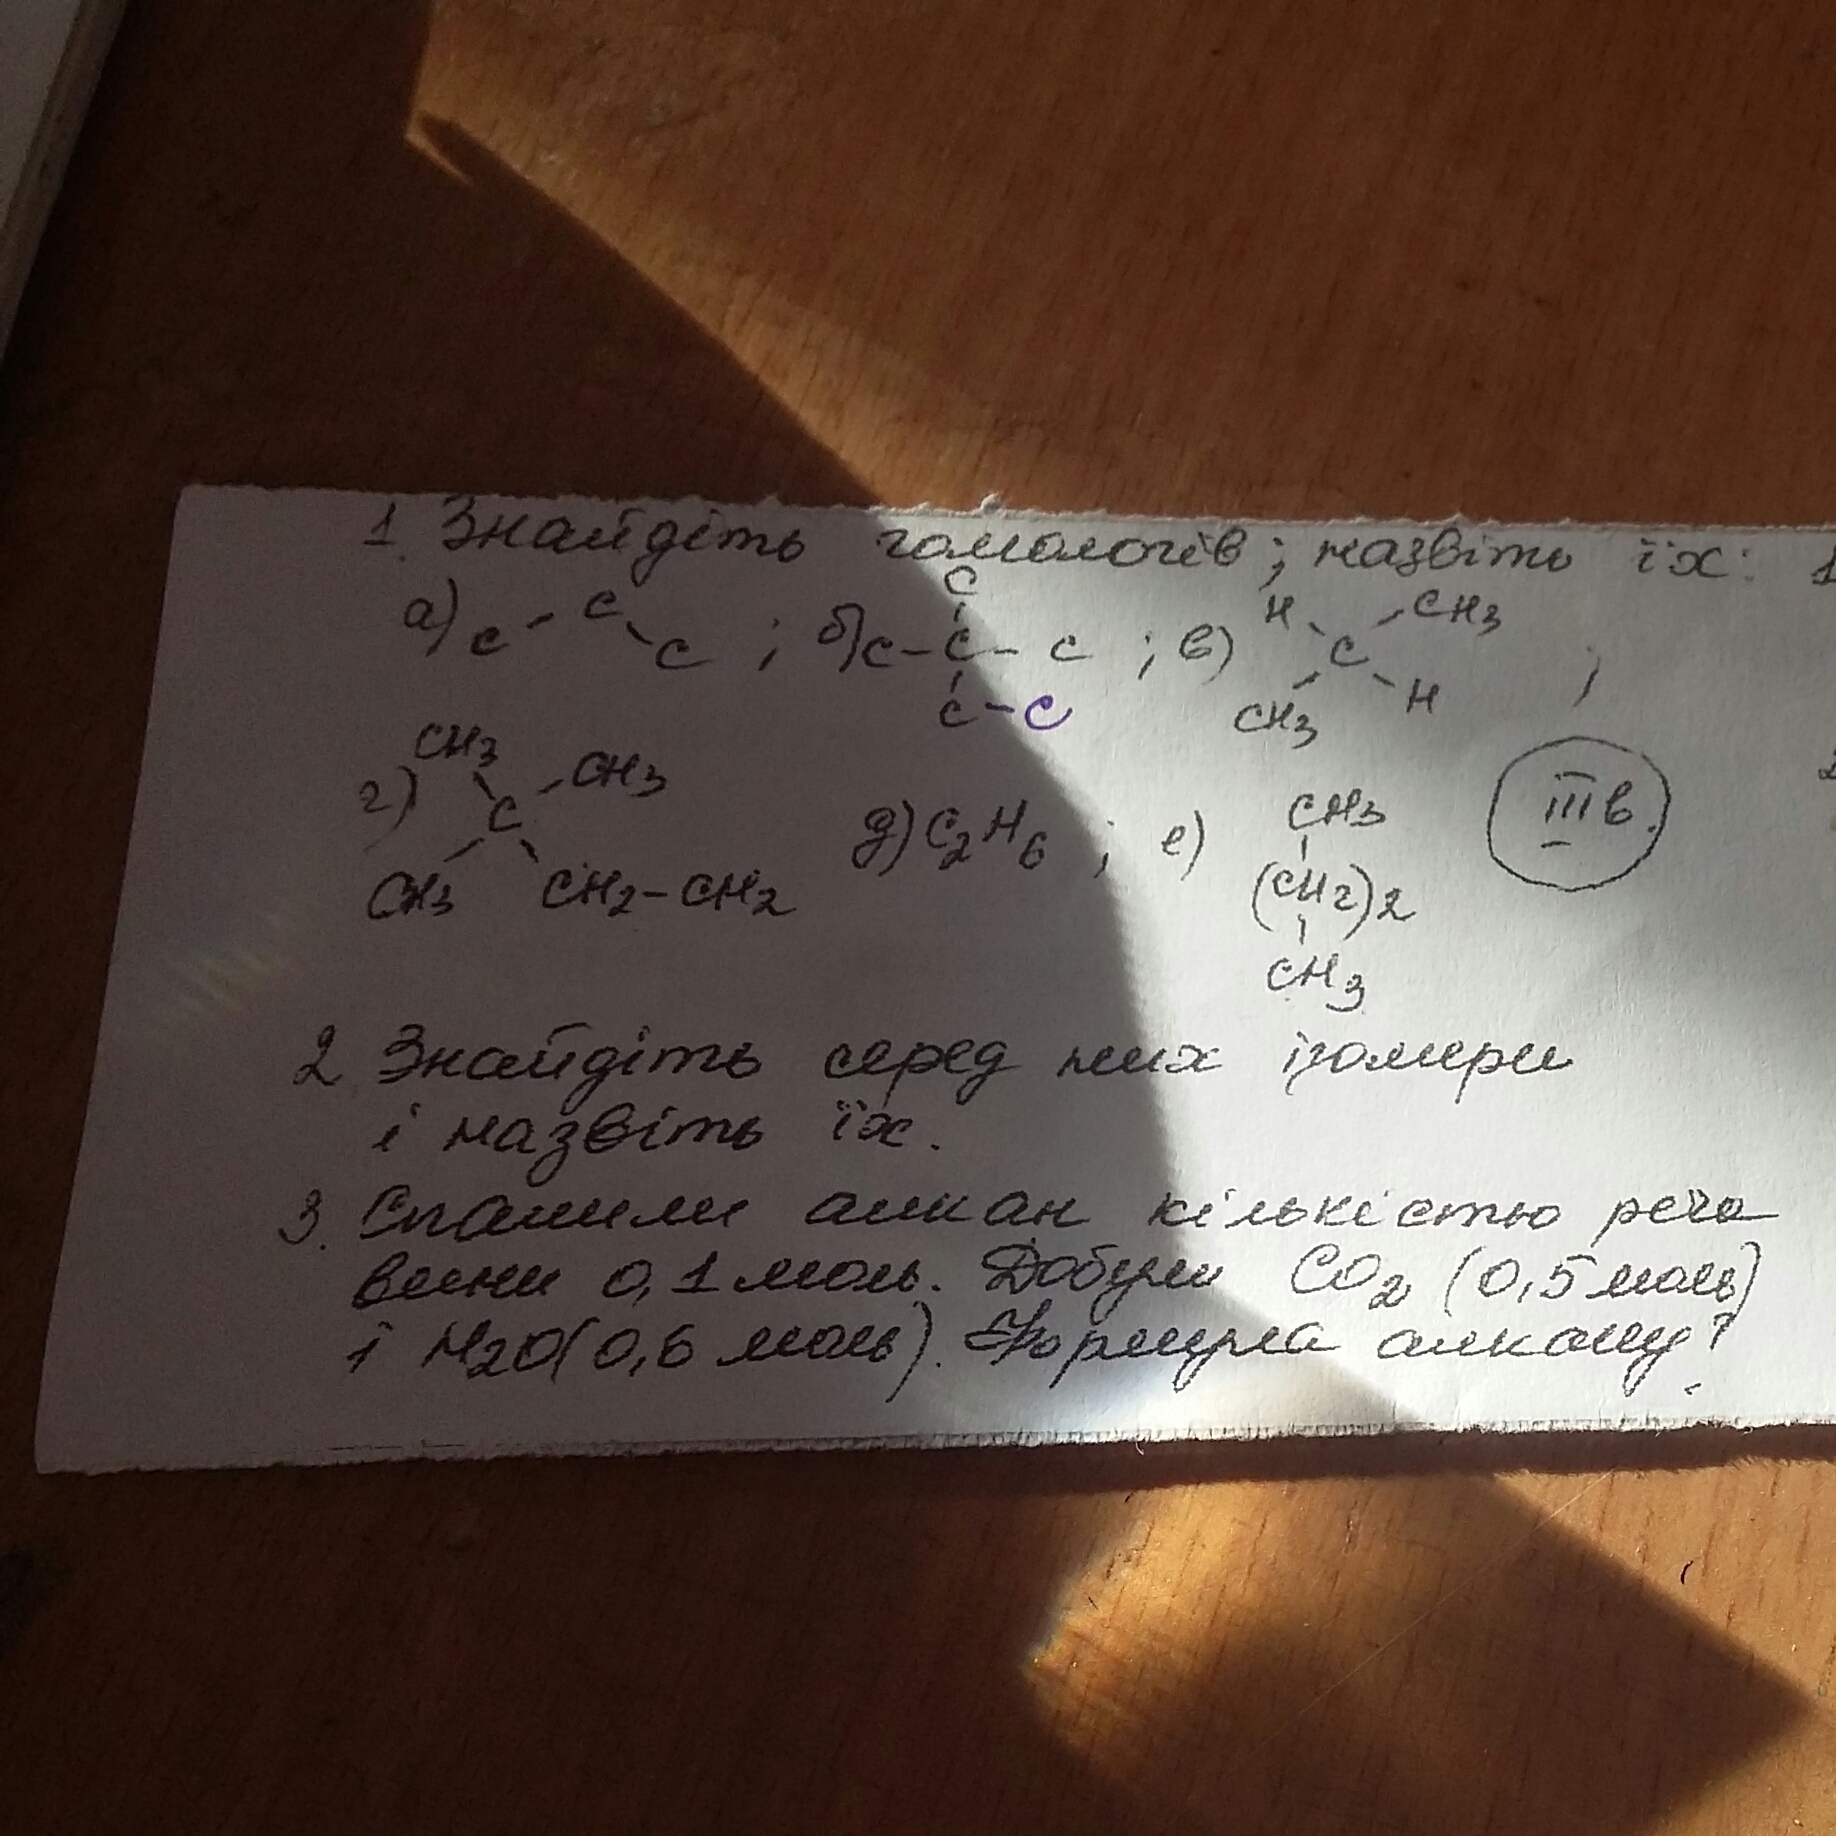 1. Знайдіть гомологів; назвіть їх: 1
C
а) C - C - C ; б) C - C - C ; в) H - C - CH3 ;
C - C
CH3 H
CH3 CH3
г) C д) C2H6 ; е) CH3 III в.
CH3 CH2-CH2 (CH2)2
CH3
2 Знайдіть серед них ізомери
і назвіть їх.
3. Спалили алкан кількістю речо
вини 0,1 моль. Добули CO2 (0,5 моль)
і H2O (0,6 моль). Формула алкану?